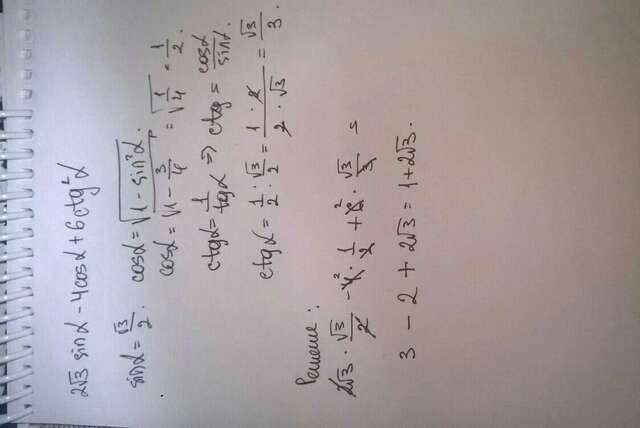 2√3 sinα - 4cosα + 6ctg²α
sinα = √3/2. cosα = √(1 - sin²α).
cosα = √(1 - 3/4) = √(1/4) = 1/2.
ctgα = 1/tgα => ctg = cosα/sinα.
ctgα = 1/2 : √3/2 = 1 · 2/2 · √3 = √3/3.
Решение:
2√3 · √3/2 - 4² · 1/2 + 6² · √3/3 =
3 - 2 + 2√3 = 1 + 2√3.